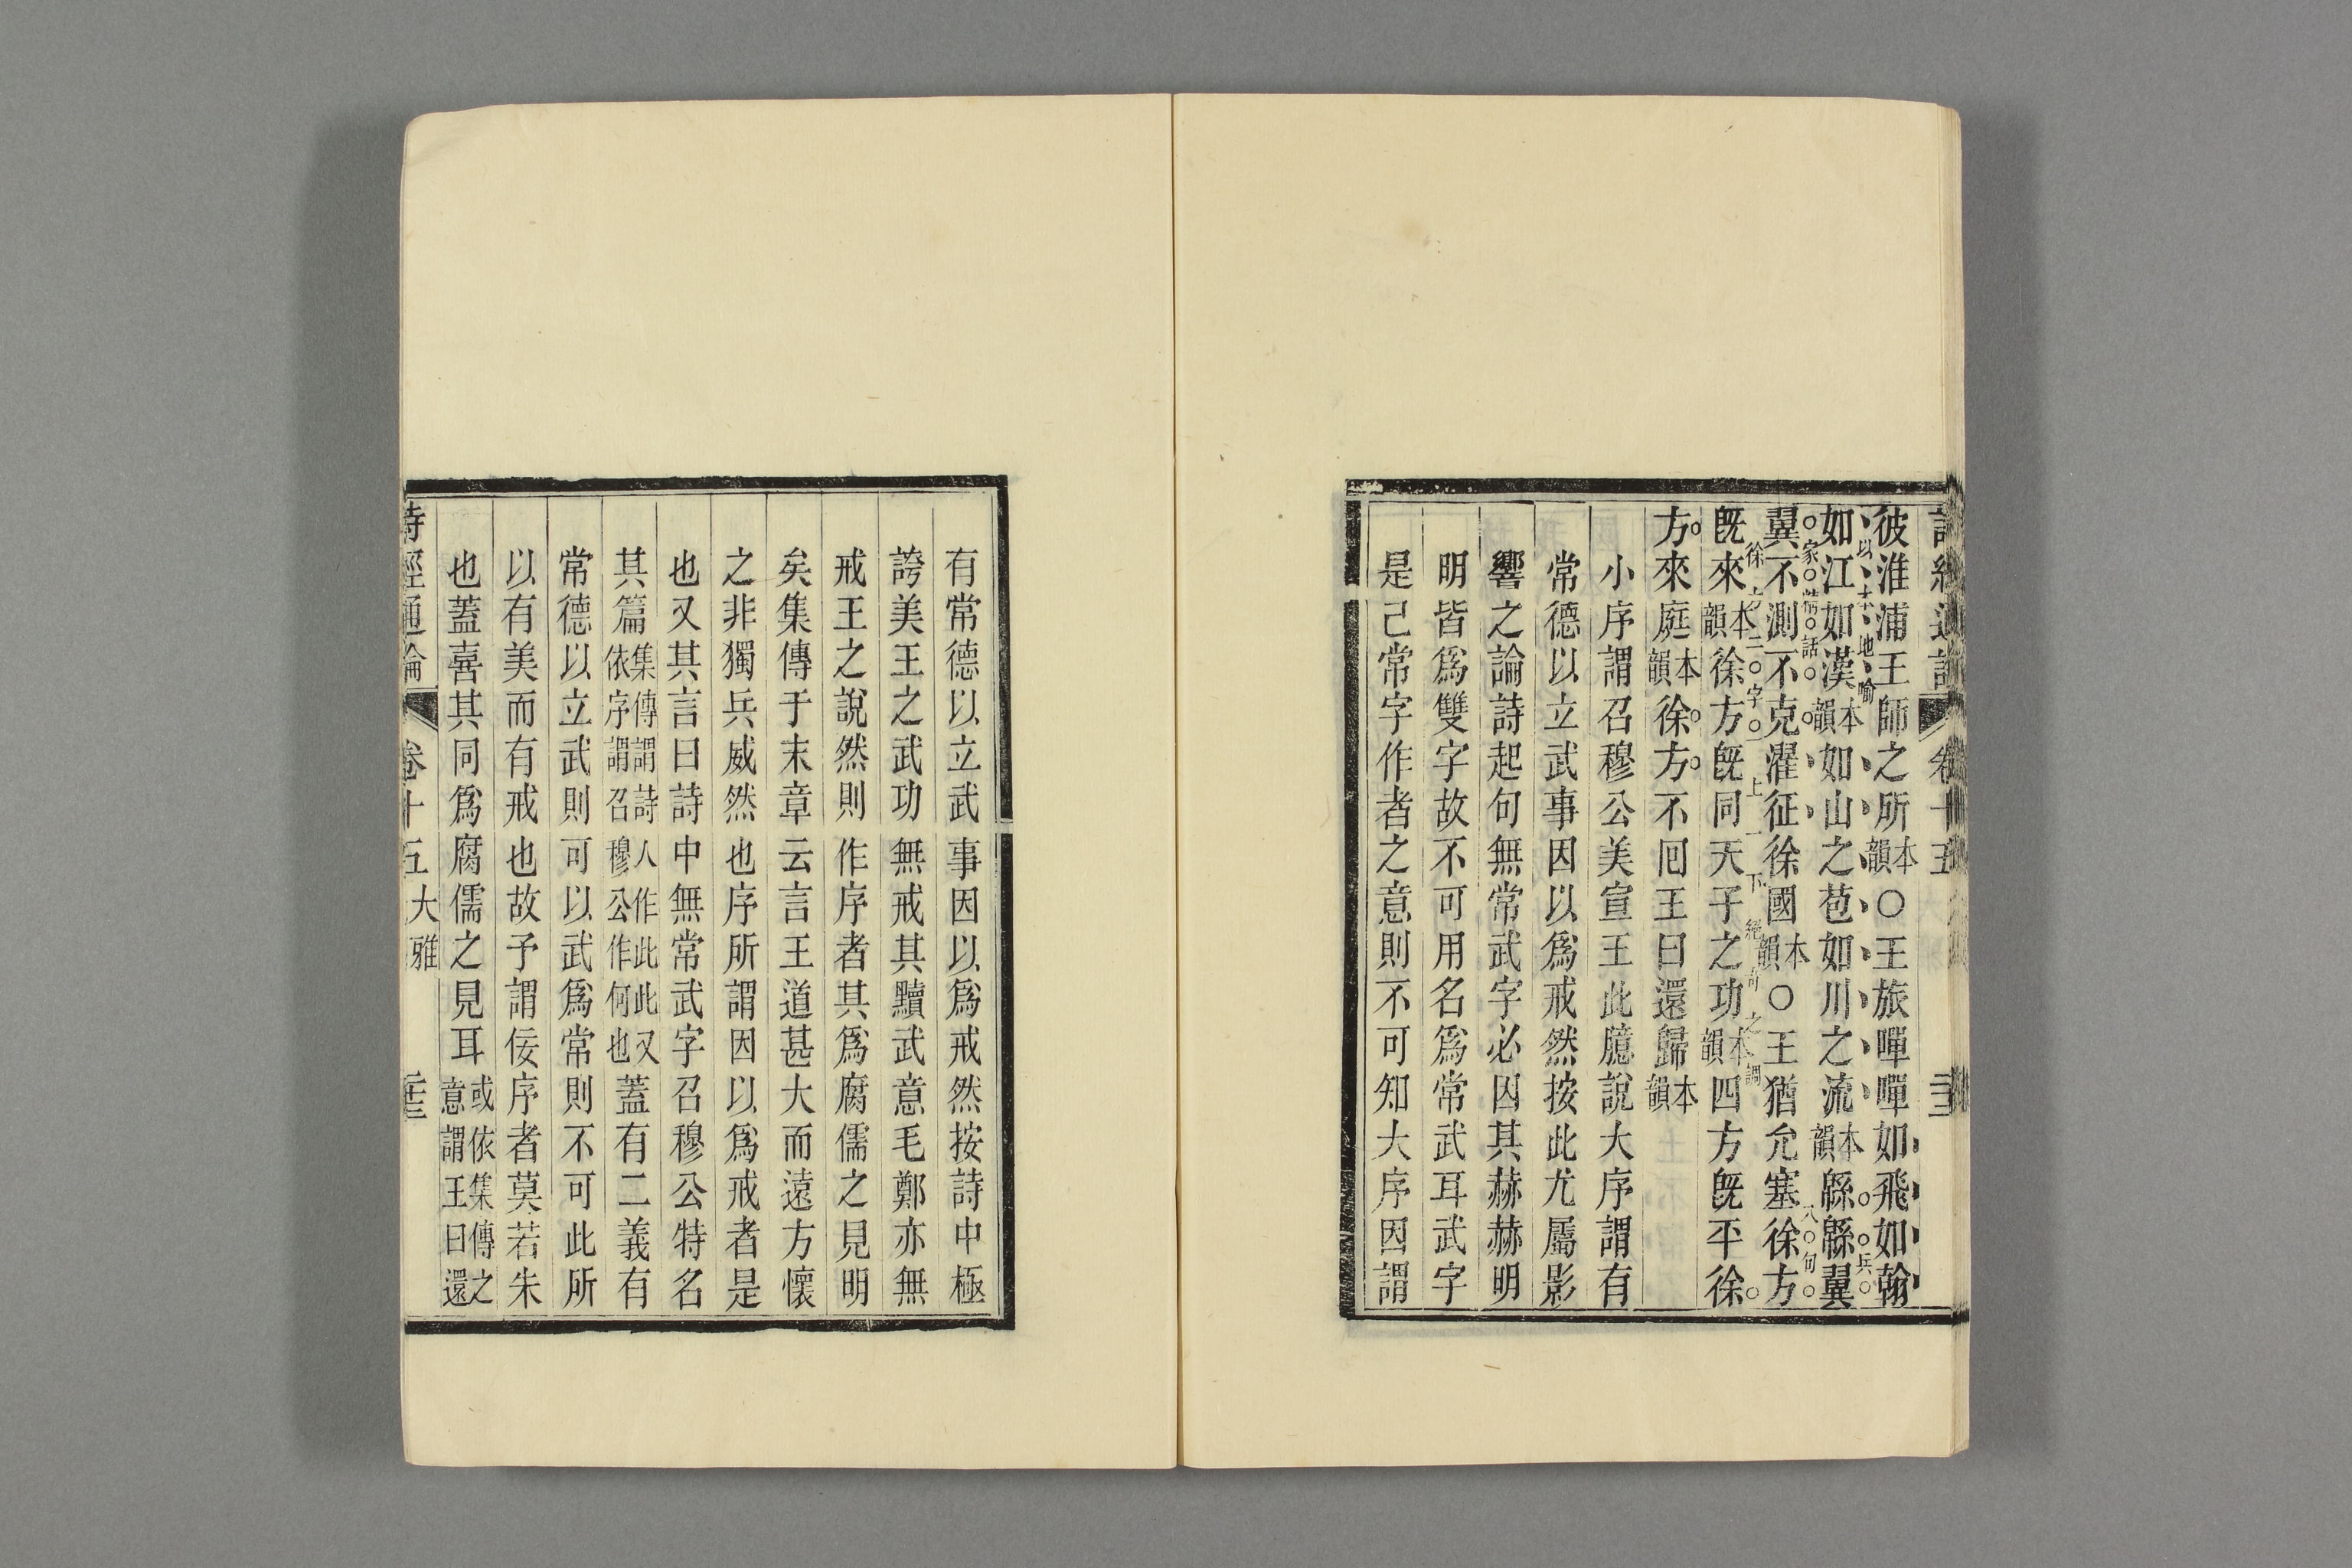 詩經通論 卷十五
彼淮浦王師之所本韻○王旅嘽嘽如飛如翰
以本地喻
如江如漢本韻如山之苞如川之流本韻緜緜翼
家常話 兵
翼不測不克濯征徐國本韻○王猶允塞徐方
徐方二字一上一下絕句之調 八句
既來本韻徐方既同天子之功本韻四方既平徐
方來庭本韻徐方不回王曰還歸本韻
小序謂召穆公美宣王此臆說大序謂有
常德以立武事因以爲戒然按此尤屬影
響之論詩起句無常武字必因其赫赫明
明皆爲雙字故不可用名爲常武耳武字
是已常字作者之意則不可知大序因謂
有常德以立武事因以爲戒然按詩中極
誇美王之武功無戒其黷武意毛鄭亦無
戒王之說然則作序者其爲腐儒之見明
矣集傳于末章云言王道甚大而遠方懷
之非獨兵威然也序所謂因以爲戒者是
也又其言曰詩中無常武字召穆公特名
其篇集傳謂詩人作此此又依序謂召穆公作何也蓋有二義有
常德以立武則可以武爲常則不可此所
以有美而有戒也故予謂佞序者莫若朱
也蓋喜其同爲腐儒之見耳或依集傳之意謂王曰還
詩經通論 卷十五 大雅 二十三